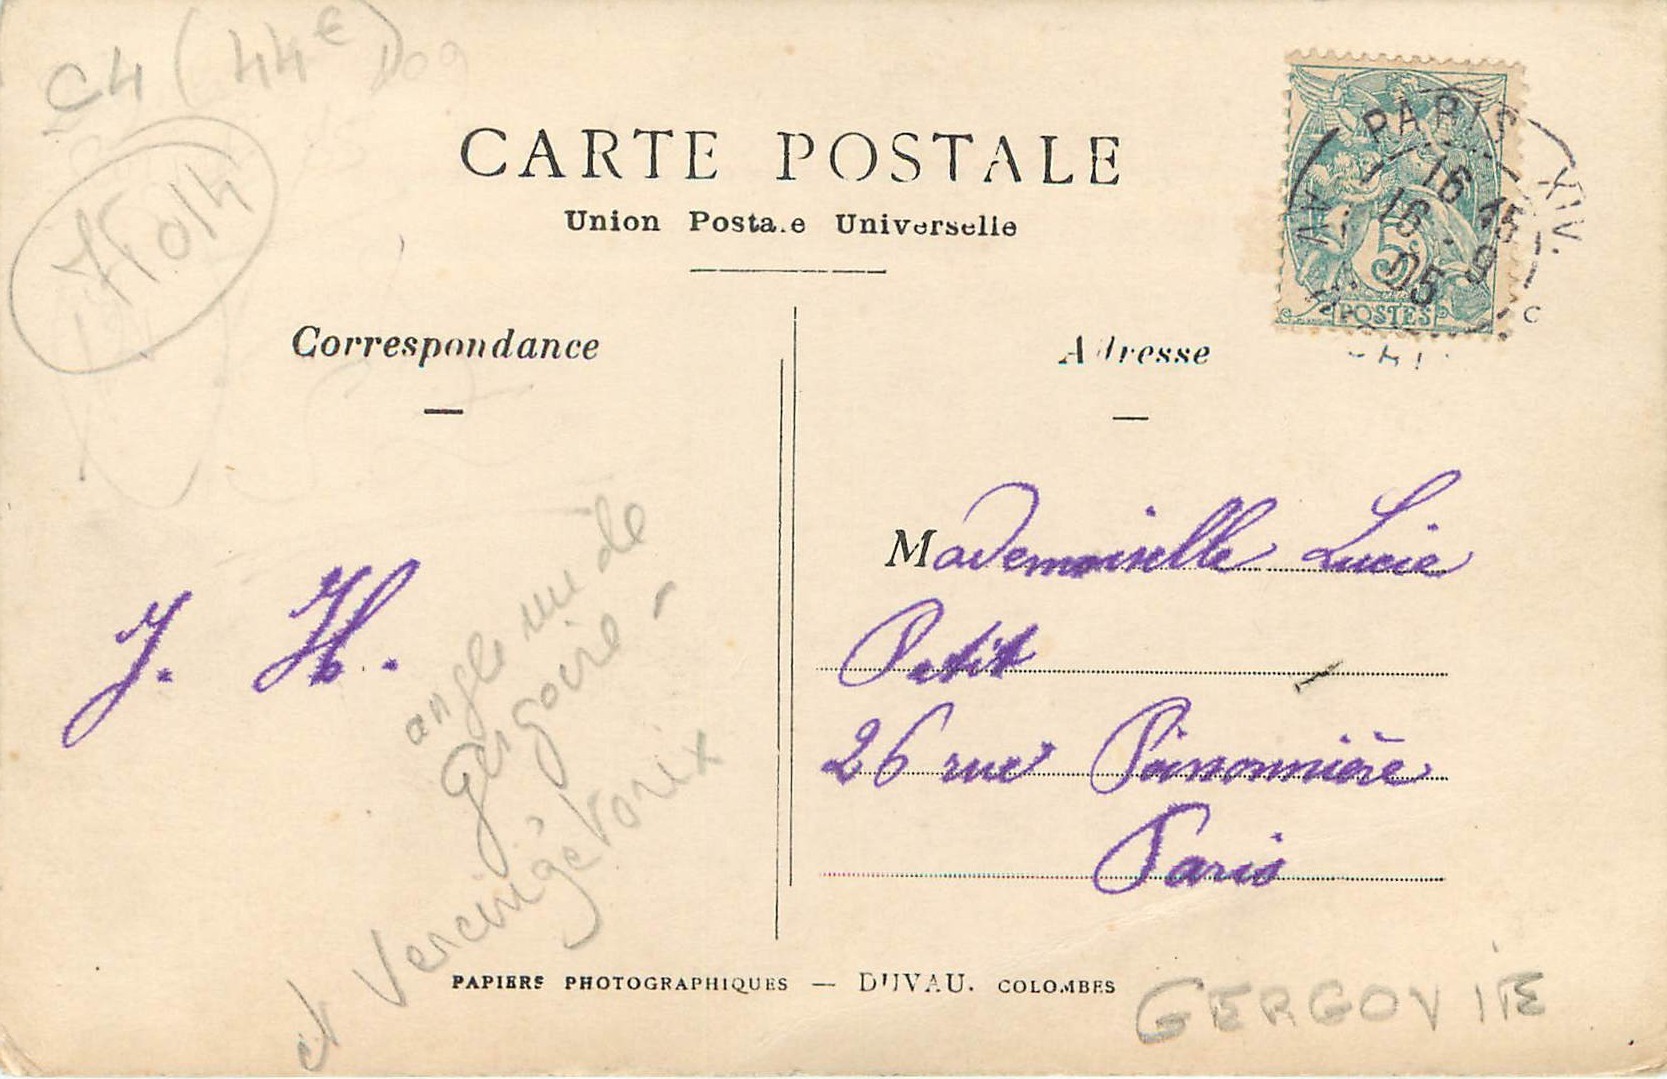 C4 (44€)
CARTE POSTALE
Union Posta.e Universelle
Correspondance
Adresse
PARIS XIV.
16 15
16 . 9
05
5
POSTES
J. H.
angle rue de
Gergovie
et Vercingétorix
Mademoiselle Lucie
Petit
26 rue Poissonnière
Paris
PAPIERS PHOTOGRAPHIQUES — DUVAU. COLOMBES
GERGOVIE